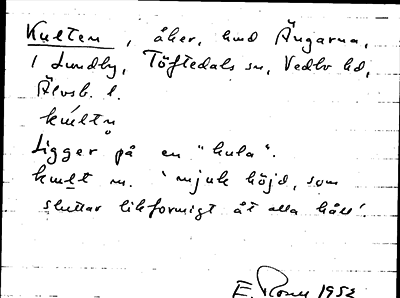 Kulten, åker, hmd Ängarna,
i Lundby, Töftedals sn, Vedbo hd,
Älvsb. l.
Ligger på en "kula".
kult m. 'mjuk höjd, som
sluttar likformigt åt alla håll'.
E. 1952